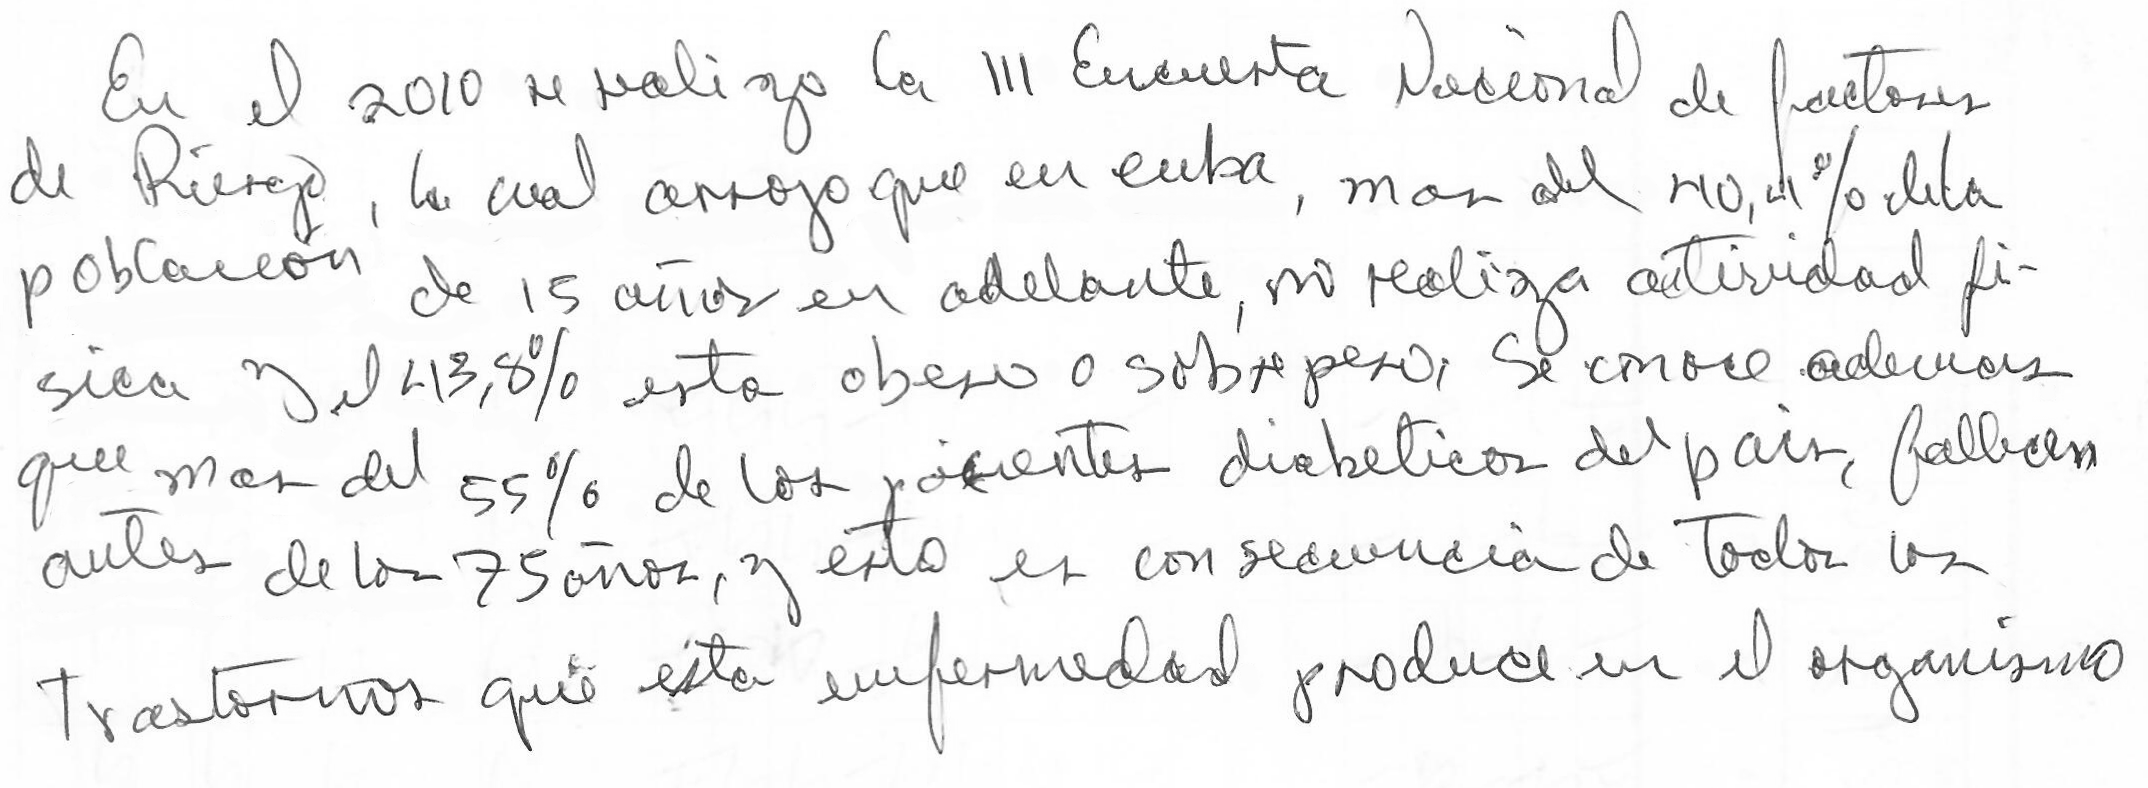 En el 2010 se realizo la III Encuesta Nacional de factores
de Riesgo, la cual arrojo que en cuba, mas del 40,4% de la
poblacion de 15 años en adelante, no realiza actividad fi-
sica y el 43,8% esta obeso o sobrepeso. Se conoce ademas
que mas del 55% de los pacientes diabeticos del pais, fallecen
antes de los 75 años, y esto es consecuencia de todos los
trastornos que esta enfermedad produce en el organismo